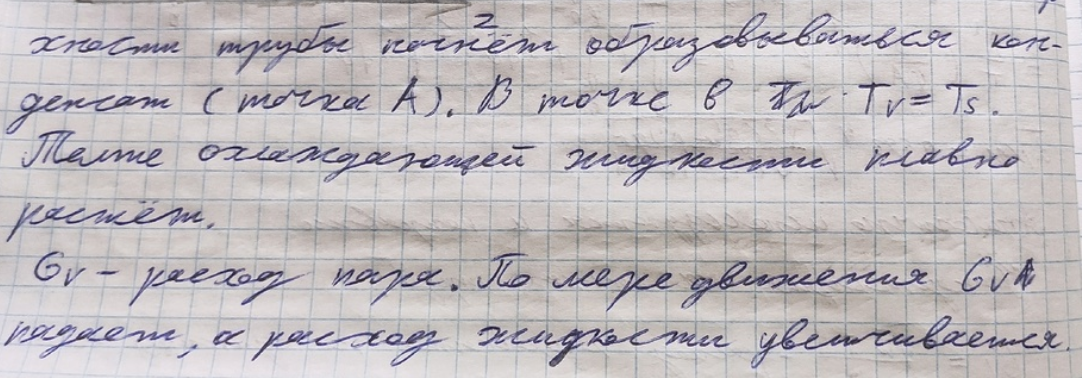 хности трубы начнёт образовываться кон-
денсат (точка А). В точке В Tv = Ts.
охлаждающей жидкости плавно
растёт.
Gv – расход пара. По мере движения Gv
падает, а расход жидкости увеличивается.